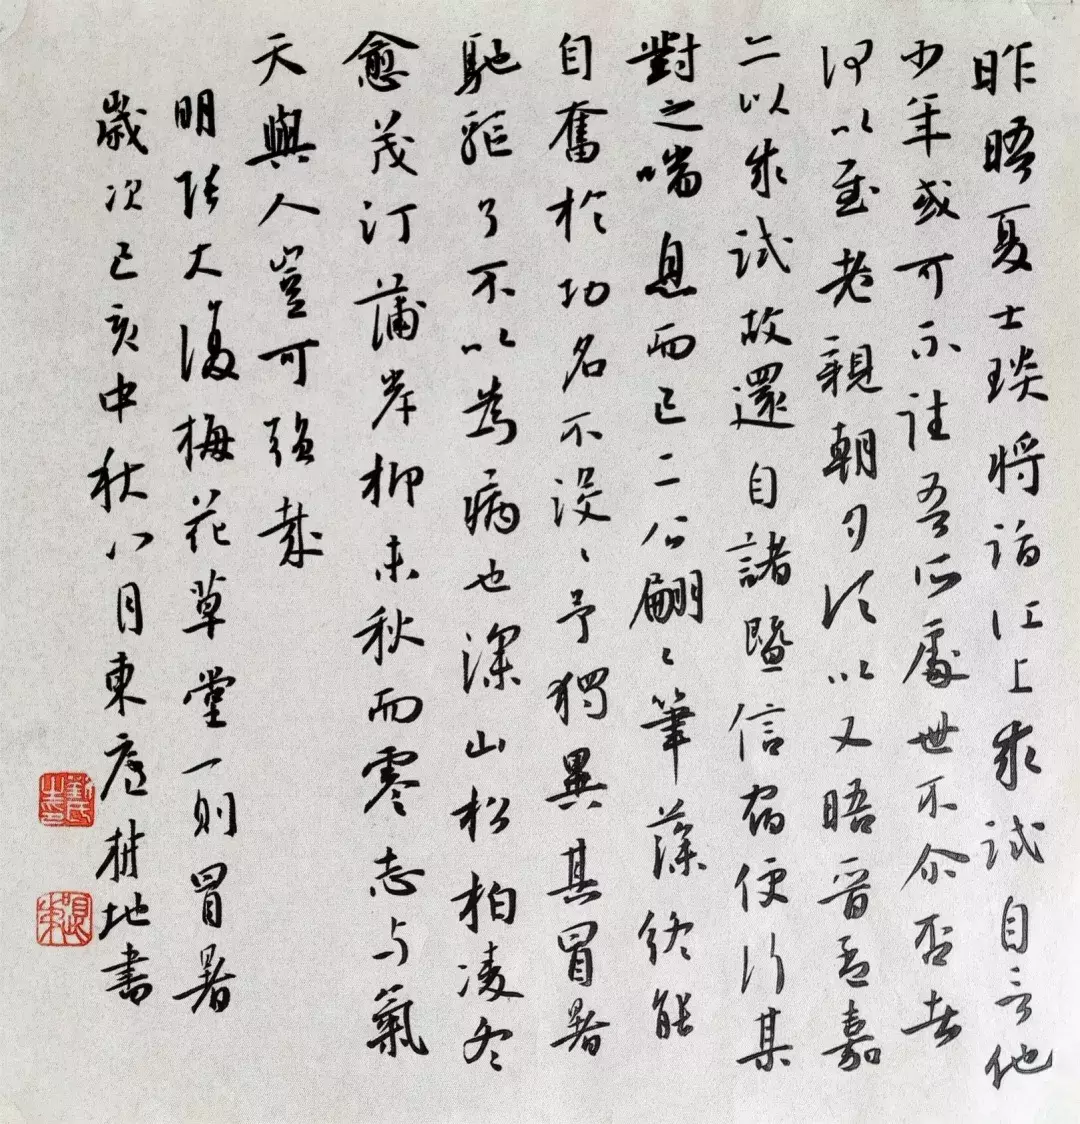 昨晤夏士琰将诣江上求试自言他
少年或可不注吾所处世不尒否者
何以至老親朝夕須以又晤晉孟嘉
二以求試故還自諸暨信宿便行某
對之喘息而已二公翩〻筆藻終能
自奮於功名不没〻予獨異其冒暑
馳驅了不以為病也深山松柏凌冬
愈茂汀蒲岸柳未秋而零志与氣
天與人豈可强哉
明張大復梅花草堂一則冒暑
歲次己亥中秋八月東廬耕地書